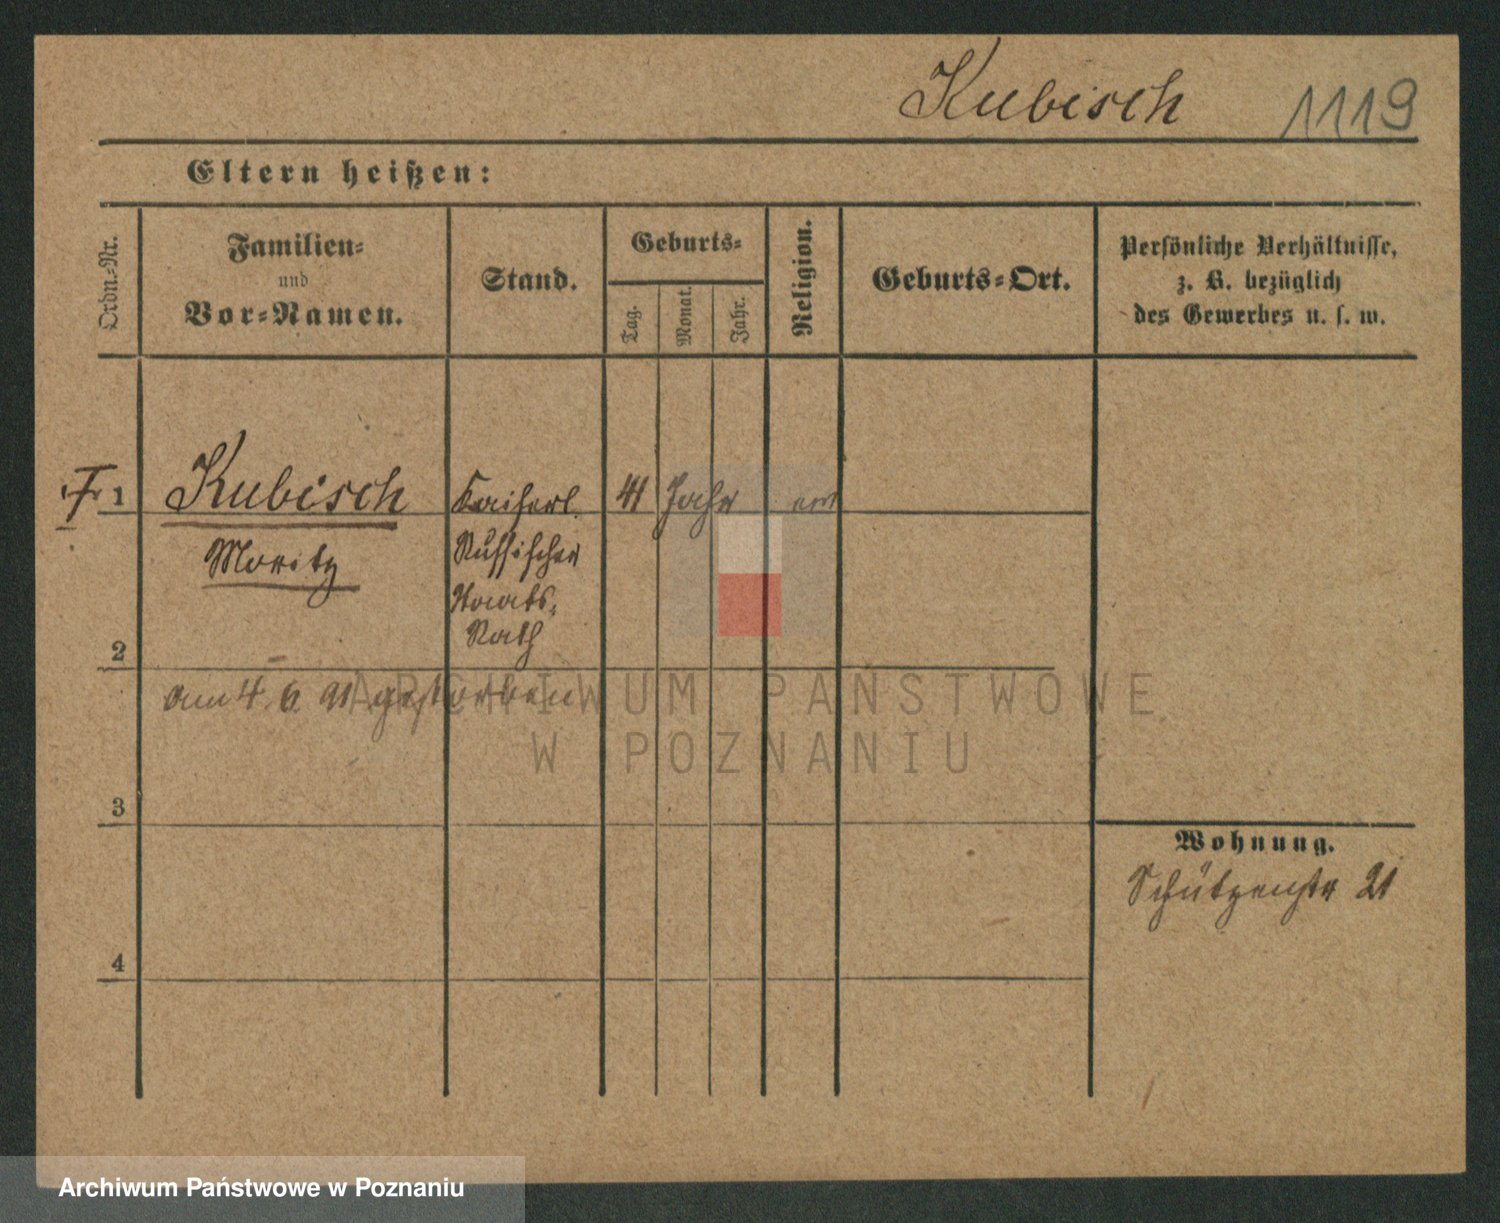 Kubisch 1119
Eltern heißen:
Ordn.-Nr.
Familien-
und
Vor-Namen.
Stand.
Geburts-
Tag.
Monat.
Jahr.
Religion.
Geburts-Ort.
Persönliche Verhältnisse,
z. B. bezüglich
des Gewerbes u. s. w.
1 Kubisch Kaiserl. 41 Jahr
Moritz Russischer
Staats-
Rath
2
am 4. 6. 91 gestorben
ARCHIWUM PAŃSTWOWE
W POZNANIU
3
Wohnung.
Schützenstr 21
4
Archiwum Państwowe w Poznaniu